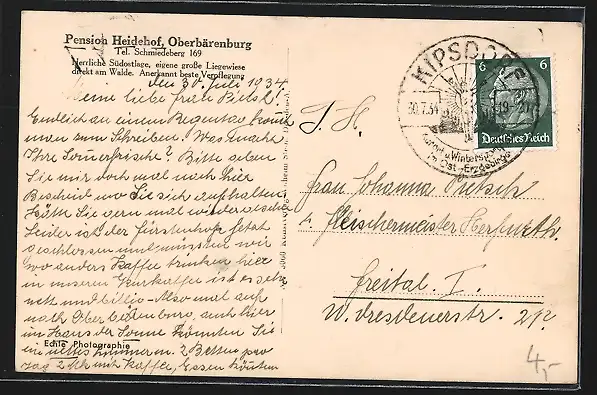 Pension Heidehof, Oberbärenburg
Tel. Schmiedeberg 169
Herrliche Südostlage, eigene große Liegewiese
direkt am Walde. Anerkannt beste Verpflegung
den 30. Juli 1934
Meine liebe Frau
Endlich an einem Regentag kommt
man zum Schreiben. Was macht
Ihre Sommerfrische? Bitte geben
Sie mir doch mal nach hier
Bescheid wo Sie sich aufhalten.
Hätte Sie gern mal wieder gesehen
Leider ist der Fürstenhof jetzt
geschlossen und müssen wir
wo anders Kaffee trinken hier
in unserem Kurkaffee ist es sehr
nett und billig. Also mal auf
nach Oberbärenburg, auch hier
im Haus der Sonne könnten Sie
ein nettes Zimmer m. 2 Betten pro
Tag 2 Mk mit Kaffee, Essen könnten
Echte Photographie
KIPSDORF
30.7.34
18-20
Kurort u. Wintersport
im Ost-Erzgebirge
6 6
Deutsches Reich
Frau Johanna
Fleischermeister
Freital I.
W. Dresdenerstr.
4,-